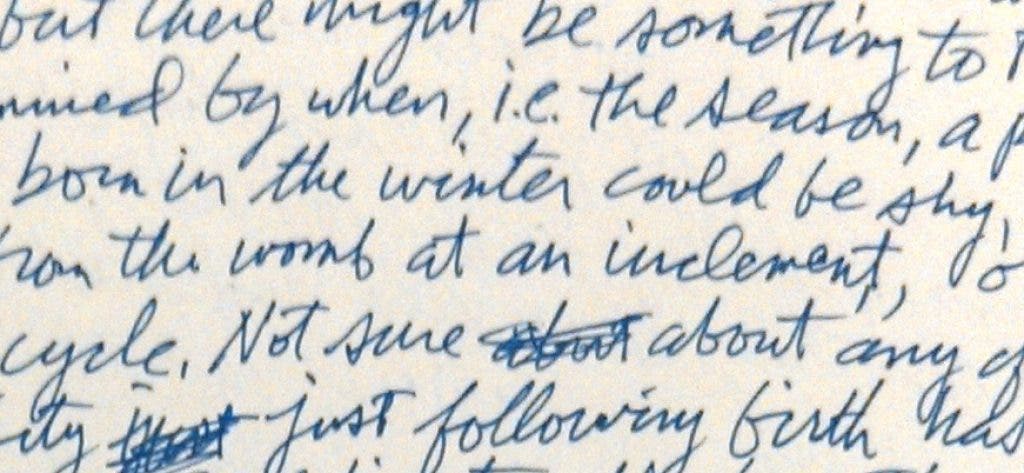 but there might be something to
mined by when, i.e. the season, a
born in the winter could be shy,
from the womb at an inclement,
cycle. Not sure about any
ity just following birth has